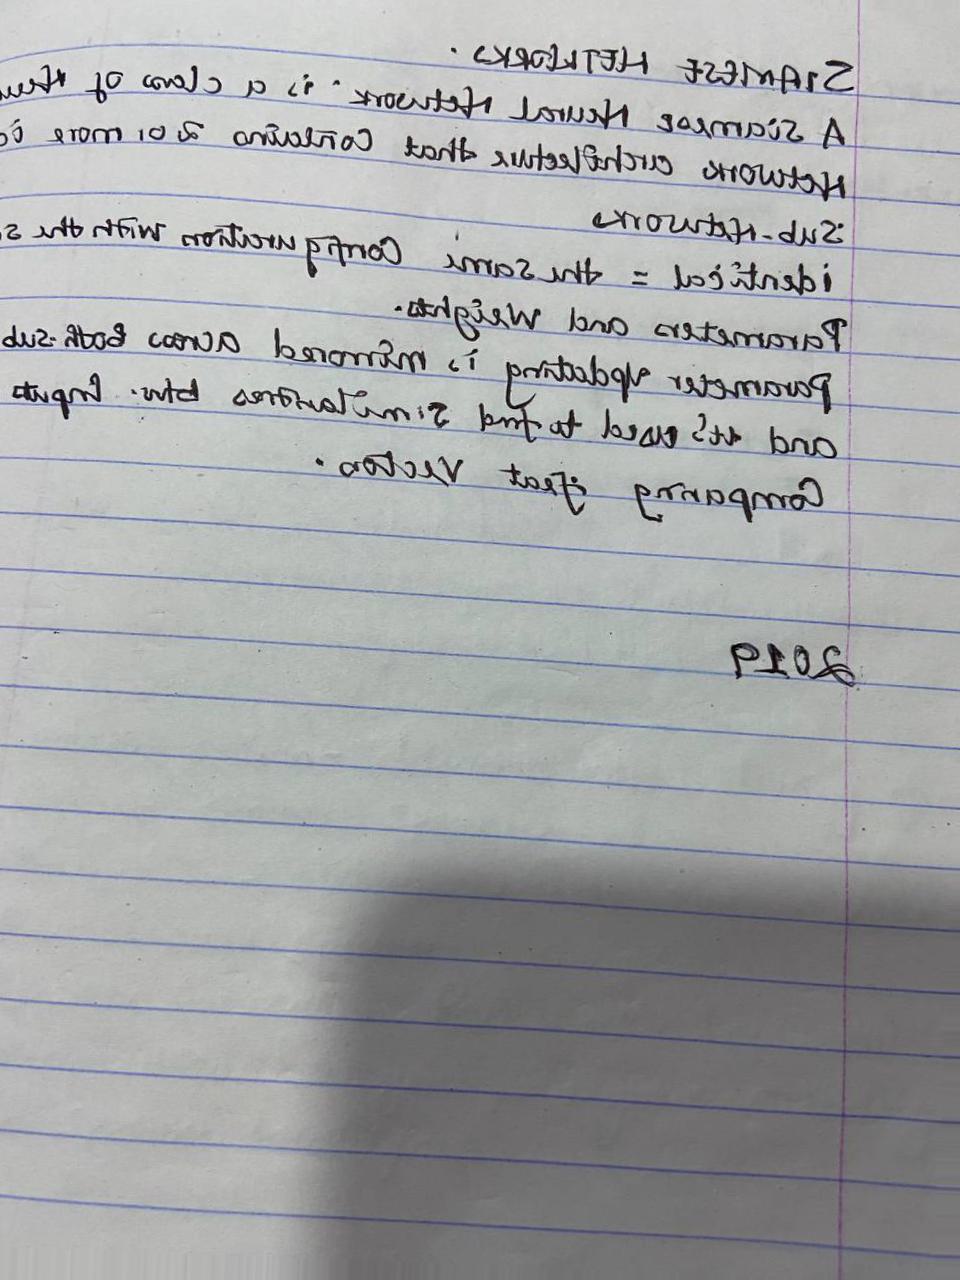 SIAMESE NETWORKS.
A Siamese Neural Network. is a class of
Network architecture that contains 2 or more
Sub-Networks
identical = the same Configuration with the
Parameters and Weights.
Parameter updating is mirrored across both sub
and it's used to find similarities btw. Inputs
Comparing feat Vectors.
2019